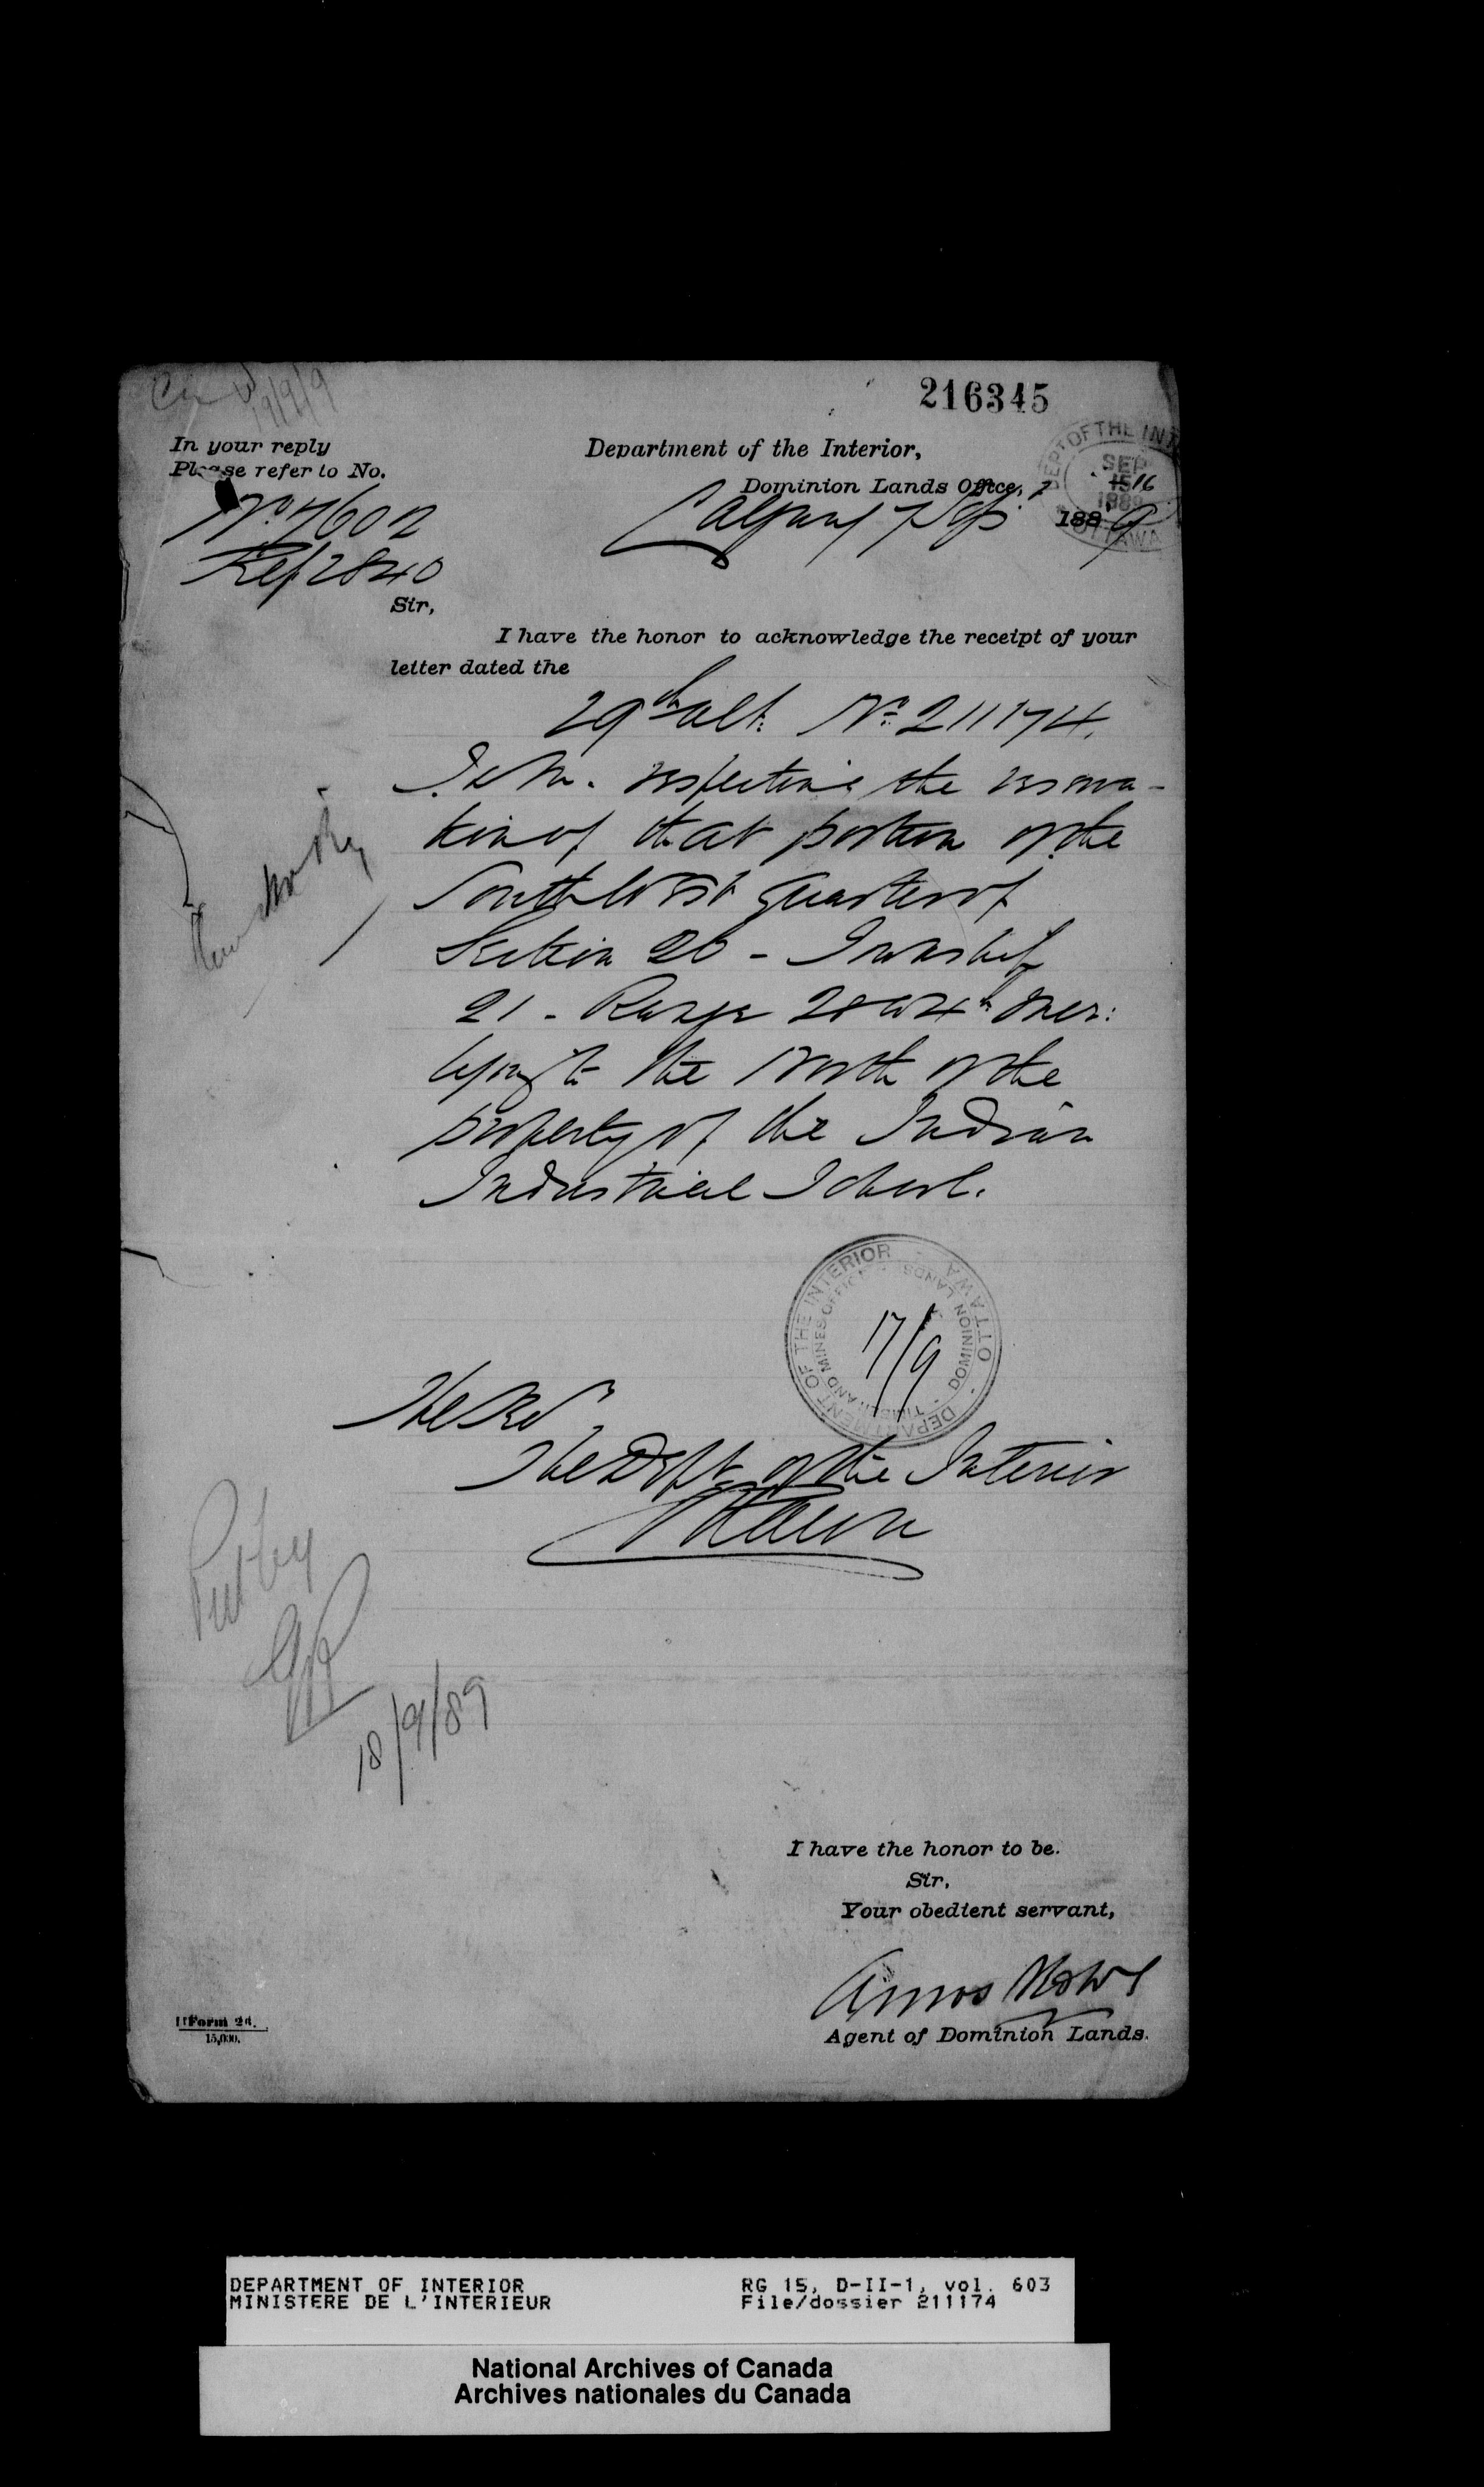 216345
In your reply
Please refer to No.
No. 7602
Ref 2840
Department of the Interior,
Dominion Lands Office,
Calgary 7 Sept 1889
DEPT OF THE INT
SEP
15 16
1889
OTTAWA
Sir,
I have the honor to acknowledge the receipt of your
letter dated the
29th ult. No. 211174.
respecting the reserva-
tion of that portion of the
South West quarter of
Section 26 - Township
21 - Range 28 W 4th Mer:
lying to the North of the
property of the Indian
Industrial School.
DEPARTMENT OF THE INTERIOR OTTAWA
TIMBER AND MINES OFFICE LANDS DOMINION
17/9
The
The Dept. of the Interior
Ottawa
Put by
18/9/89
I have the honor to be.
Sir,
Your obedient servant,
Amos Rowe
Agent of Dominion Lands.
Form 2d.
15,000.
DEPARTMENT OF INTERIOR
MINISTERE DE L'INTERIEUR
RG 15, D-II-1, vol. 603
File/dossier 211174
National Archives of Canada
Archives nationales du Canada